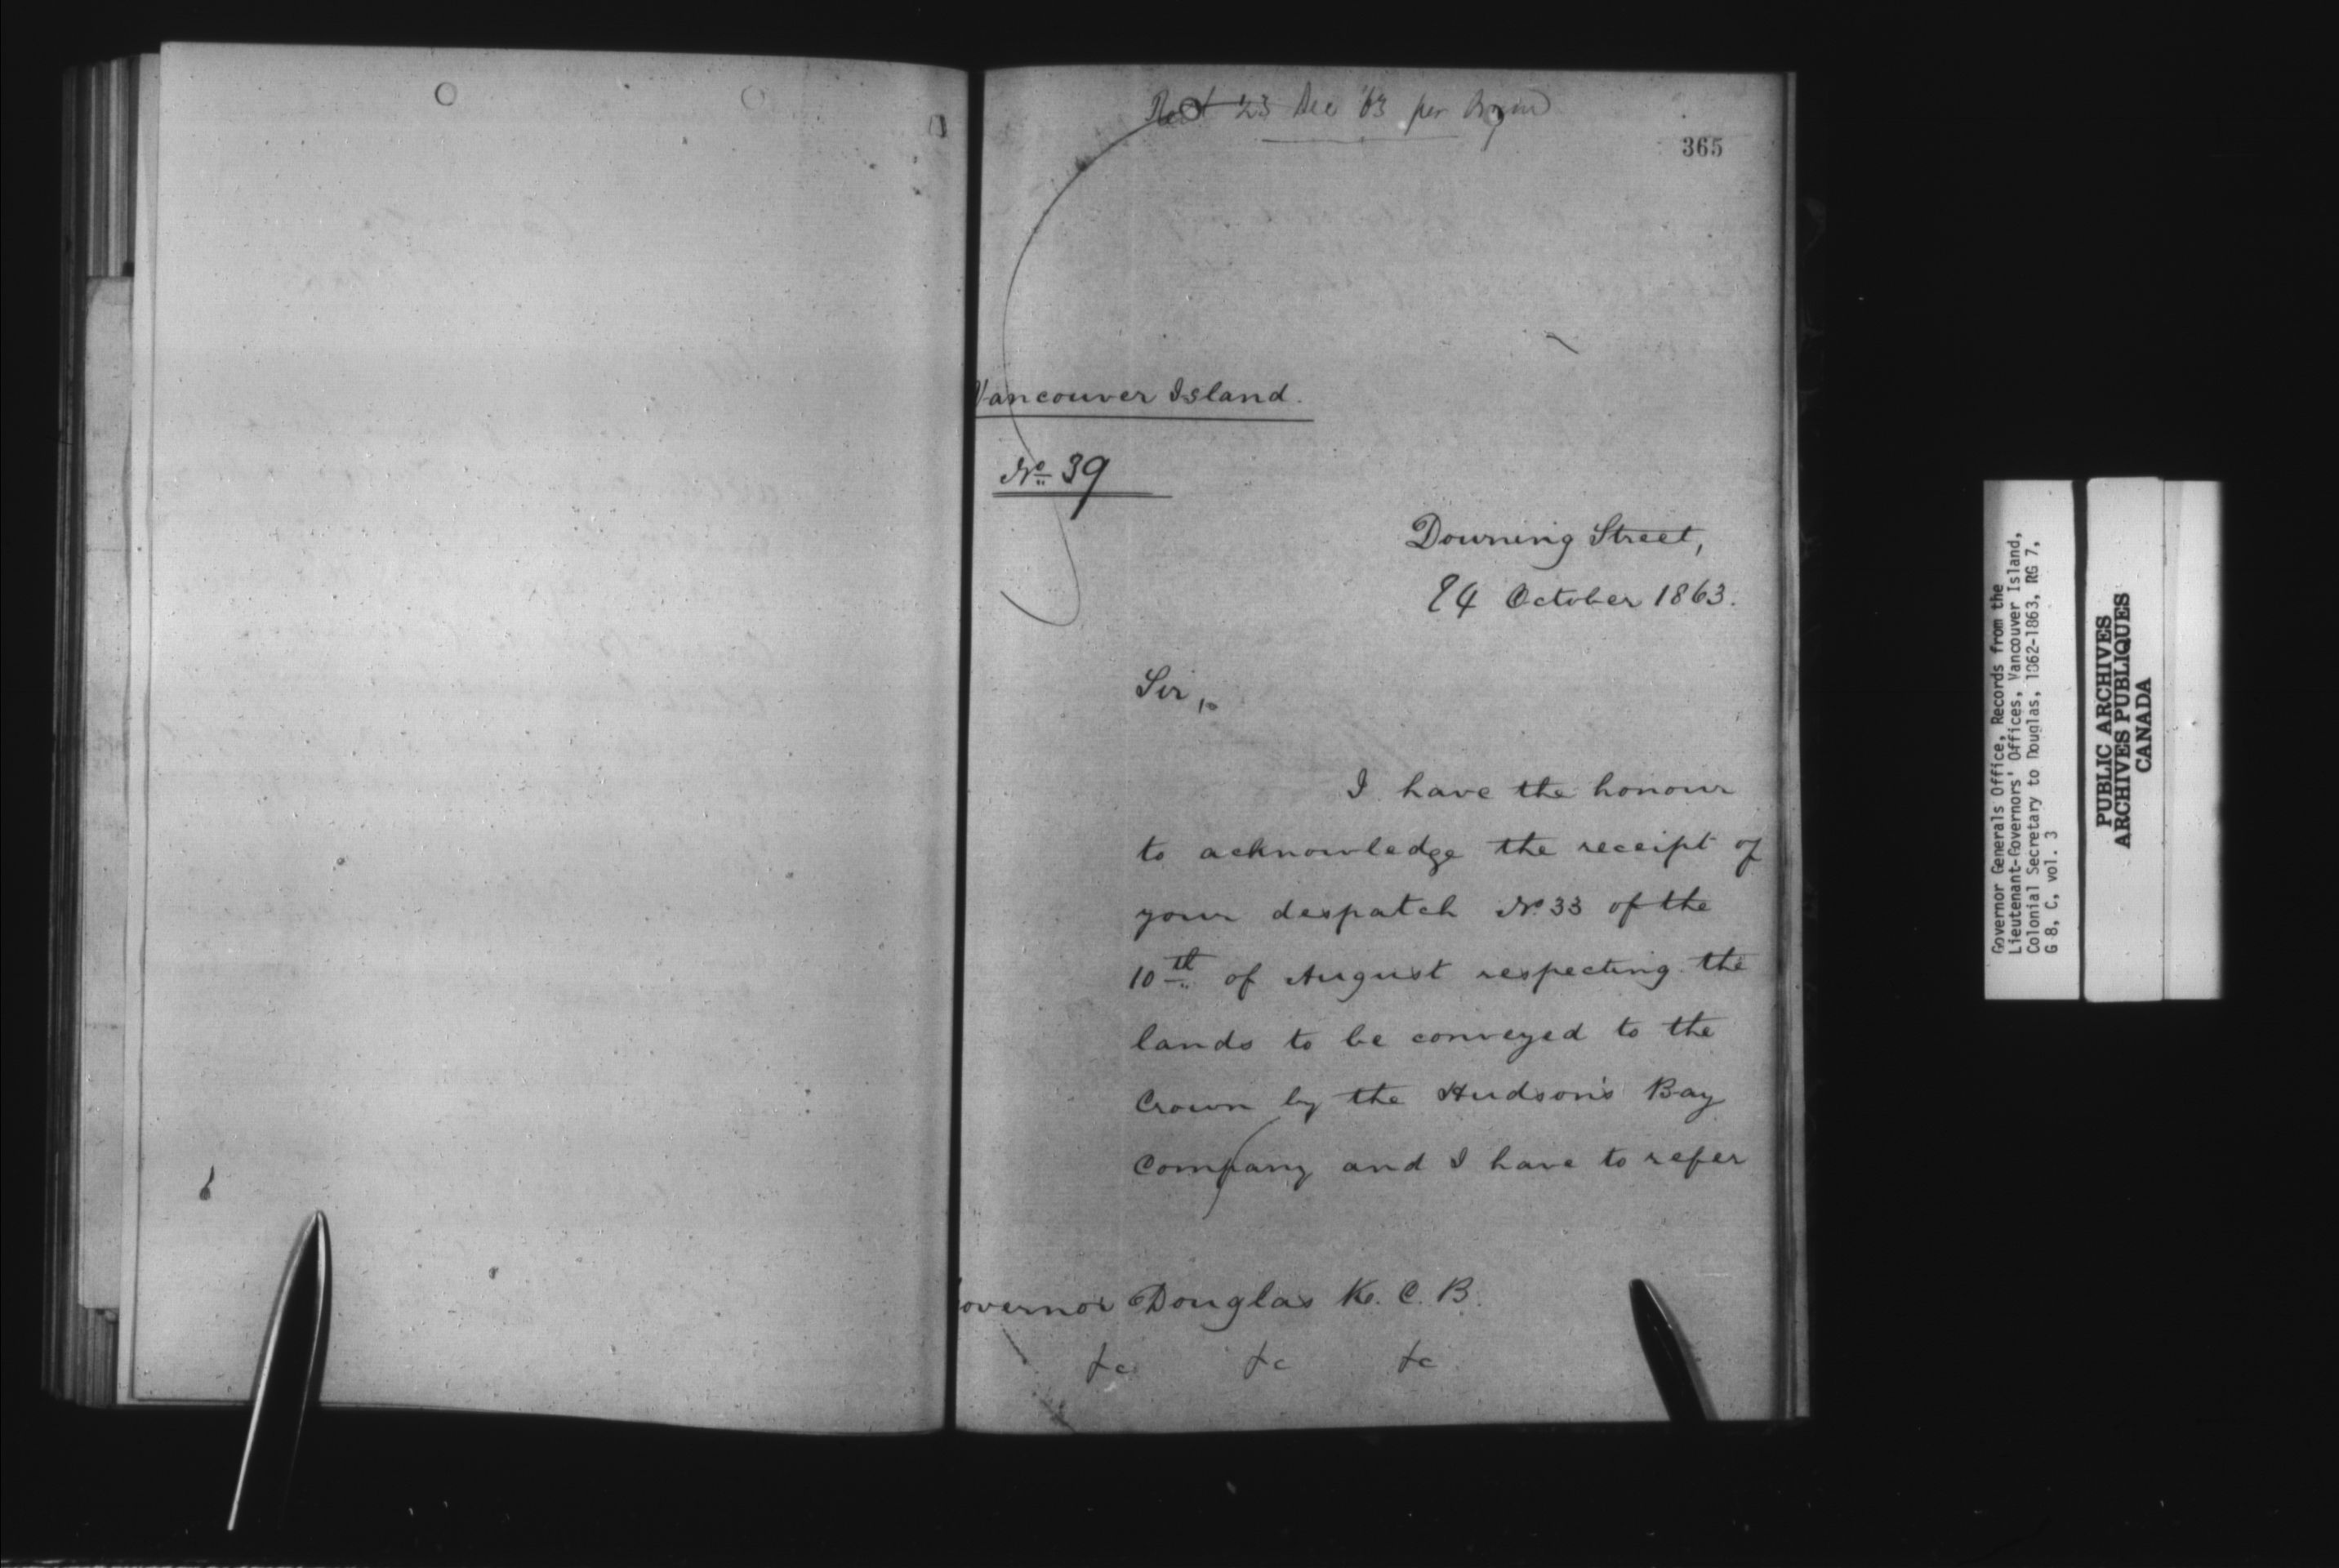 Recd 23 Dec '63 per
365
Vancouver Island.
No 39
Downing Street,
24 October 1863.
Sir,
I have the honour
to acknowledge the receipt of
your despatch No 33 of the
10th of August respecting the
lands to be conveyed to the
Crown by the Hudson's Bay
Company and I have to refer
overnor Douglas K. C. B.
&c &c &c
Governor Generals Office, Records from the
Lieutenant-Governors' Offices, Vancouver Island,
Colonial Secretary to Douglas, 1862-1863, RG 7,
G 8, C, vol. 3
PUBLIC ARCHIVES
ARCHIVES PUBLIQUES
CANADA